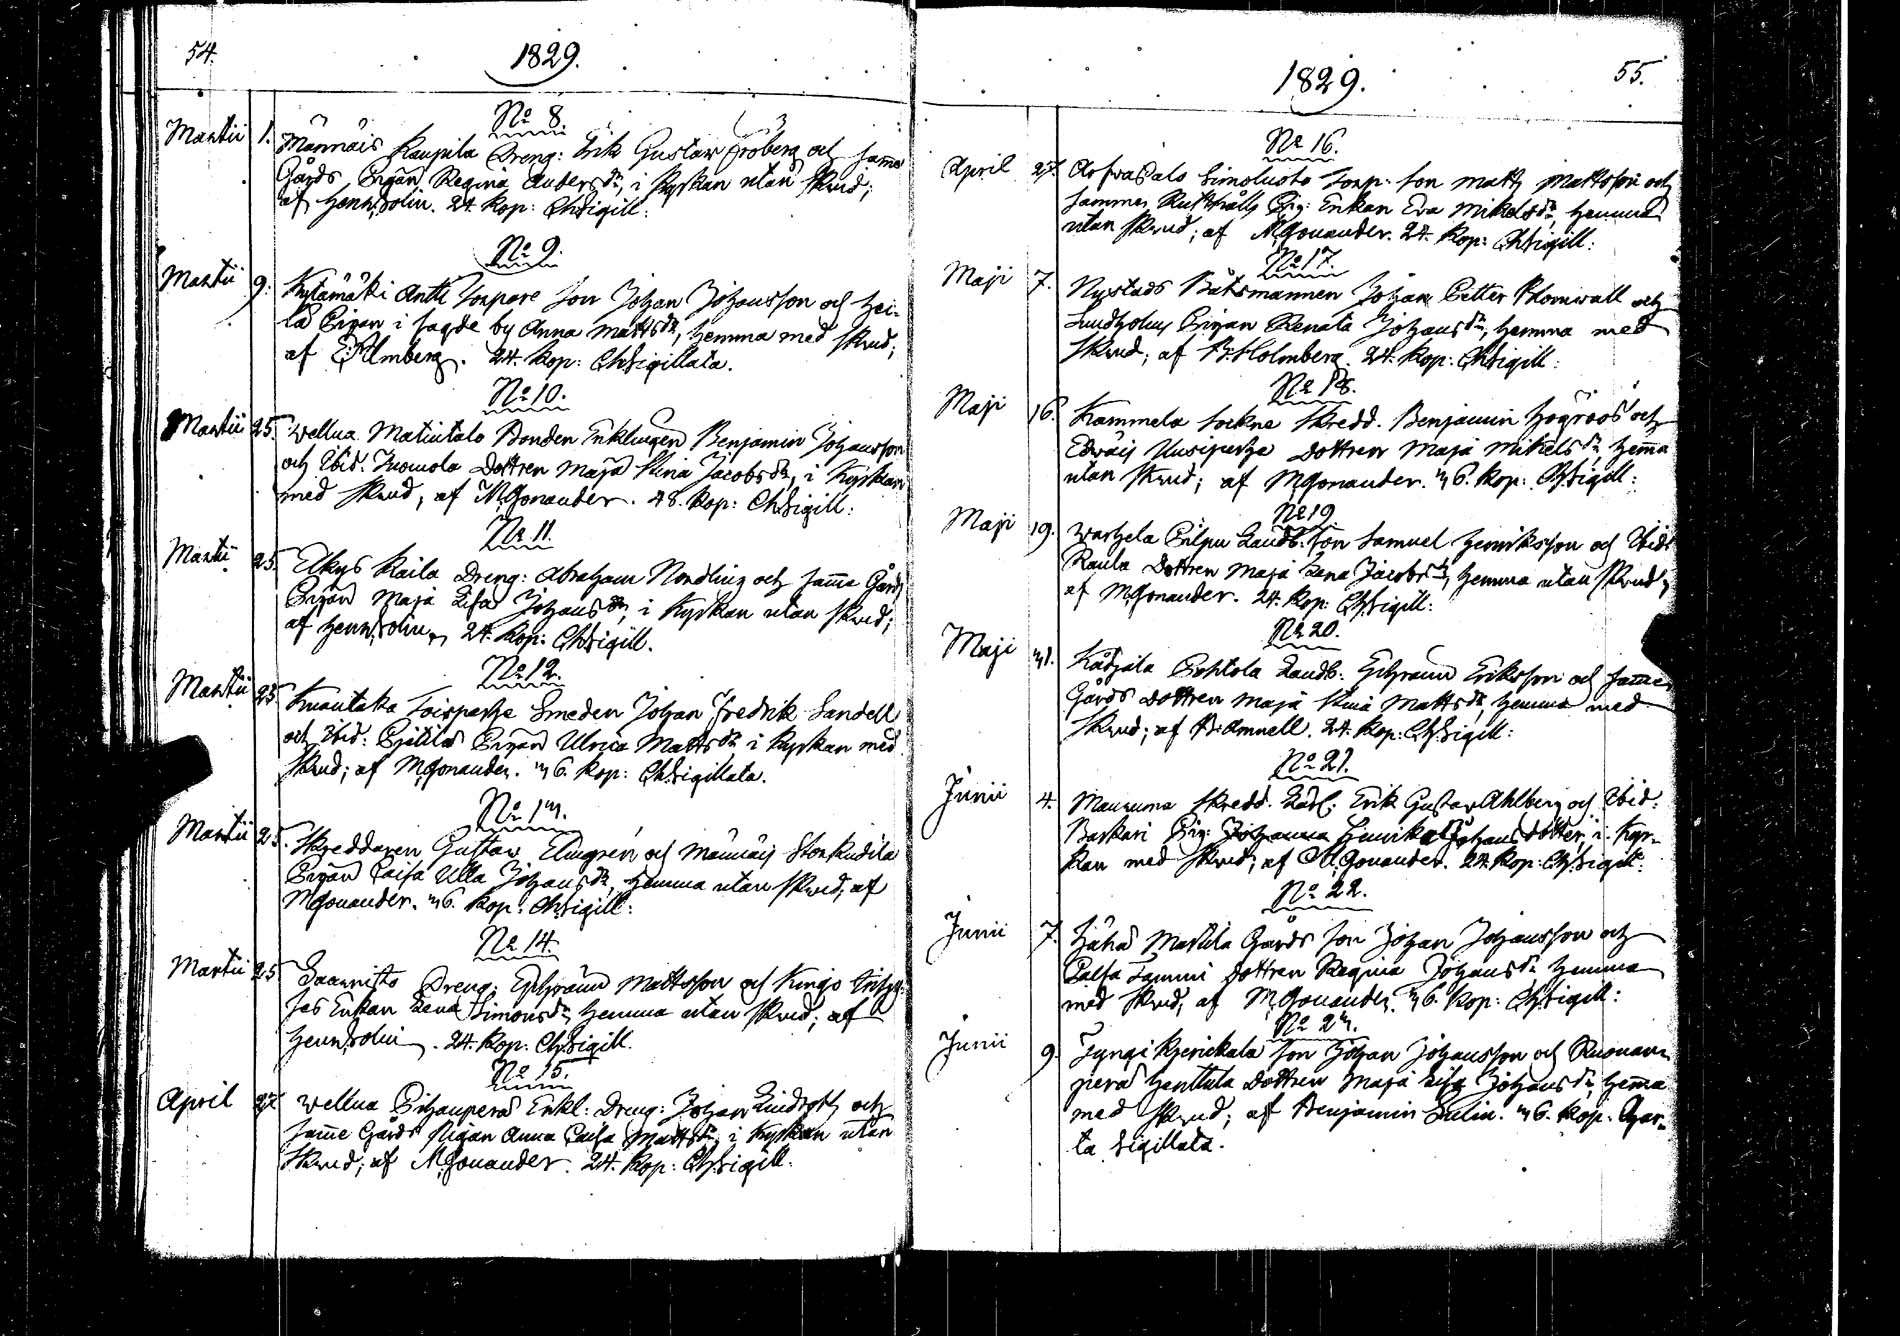 54.
1829.
No 8.
Martii 1. Männäis Kaupila Dreng: Erik Gustav Fröberg och samme
Gårds Pigan Regina Andersdr, i Kyrkan utan Skrud;
af Henr. Polin. 24. Kop: Ch. Sigill:
No 9.
Martii 9. Kytämäki Antti Torpare Son Johan Johansson och Hei-
lä Pigan i sagde by Anna Mattsdr, hemma med Skrud;
af E. Almberg. 24. Kop: Ch. Sigillata.
No 10.
Martii 25. Wellua Matintalo Bonden Enklingen Benjamin Johansson
och Ibid. Inomola Dottren Maja Stina Jacobsdr, i Kyrkan
med Skrud, af M. Gonander. 48. Kop: Ch. Sigill:
No 11.
Martii 25. Elkys Kaila Dreng: Abraham Nordling och samme Gårds
Pigan Maja Lisa Johansdr, i Kyrkan utan Skrud;
af Henr. Polin, 24. Kop: Ch. Sigill.
No 12.
Martii 25. Knautaka Toispertje Smeden Johan Fredrik Sandell
och Ibid: Pjetila Pigan Ulrica Mattsdr i Kyrkan med
Skrud; af M. Gonander. 36. Kop: Ch. Sigillata.
No 13.
Martii 25. Skreddaren Gustav Elmgren och Männäis Storkudila
Pigan Caisa Ulla Johansdr, hemma utan Skrud; af
M. Gonander. 36. Kop: Ch. Sigill:
No 14.
Martii 25. Saaristo Dreng: Ephraim Mattsson och Kinjo
Enkan Lena Simonsdr, hemma utan Skrud; af
Henr. Polin. 24. Kop: Ch. Sigill.
No 15.
April 27. Wellua Pihanperä Enkl: Dreng: Johan Lindroth och
samme Gårds Pigan Anna Caisa Mattsdr, i Kyrkan utan
Skrud; af M. Gonander. 24. Kop: Ch. Sigill.
55.
1829.
No 16.
April 27. Arfvasalo Simoluoto Torp: Son Matts Mattsson och
sammes Rusthålls Pig: Enkan Eva Mikelsdr, hemma
utan Skrud; af M. Gonander. 24. Kop: Ch. Sigill:
No 17.
Maji 7. Nystads Båtsmannen Johan Petter Blomwall och
Lundholms Pigan Renata Johansdr, hemma med
Skrud; af Br. Holmberg. 24. Kop: Ch. Sigill:
No 18.
Maji 16. Kammela Sockne Skredd. Benjamin Högroos och
Edväis Uusipertje Dottren Maja Mikelsdr hemma
utan Skrud; af M. Gonander. 36. Kop: Ch. Sigill:
No 19.
Maji 19. Warhela Pilpu Landb: Son Samuel Henriksson och Ibid:
Raula Dottren Maja Lena Jacobsdr, hemma utan Skrud;
af M. Gonander. 24. Kop: Ch. Sigill:
No 20.
Maji 31. Kådjala Pohtola Landb: Ephraim Eriksson och sammes
Gårds Dottren Maja Stina Mattsdr, hemma med
Skrud; af Br. Amnell. 24. Kop: Ch. Sigill:
No 21.
Junii 4. Maurumа Skredd. Lärl: Erik Gustav Ahlberg och Ibid:
Baskari Pig: Henrika Johans dotter, i Kyr-
kan med Skrud; af M. Gonander. 24. Kop: Ch. Sigill:
No 22.
Junii 7. Häha Markila Gårds Son Johan Johansson och
Palsa Tammi Dottren Regina Johansdr hemma
med Skrud, af M. Gonander. 36. Kop: Ch. Sigill:
No 23.
Junii 9. Tyngi Kjerickala Son Johan Johansson och Ruonan-
perä Hanttula Dottren Maja Lisa Johansdr, hemma
med Skrud; af Benjamin Salin. 36. Kop: Char-
ta Sigillata.